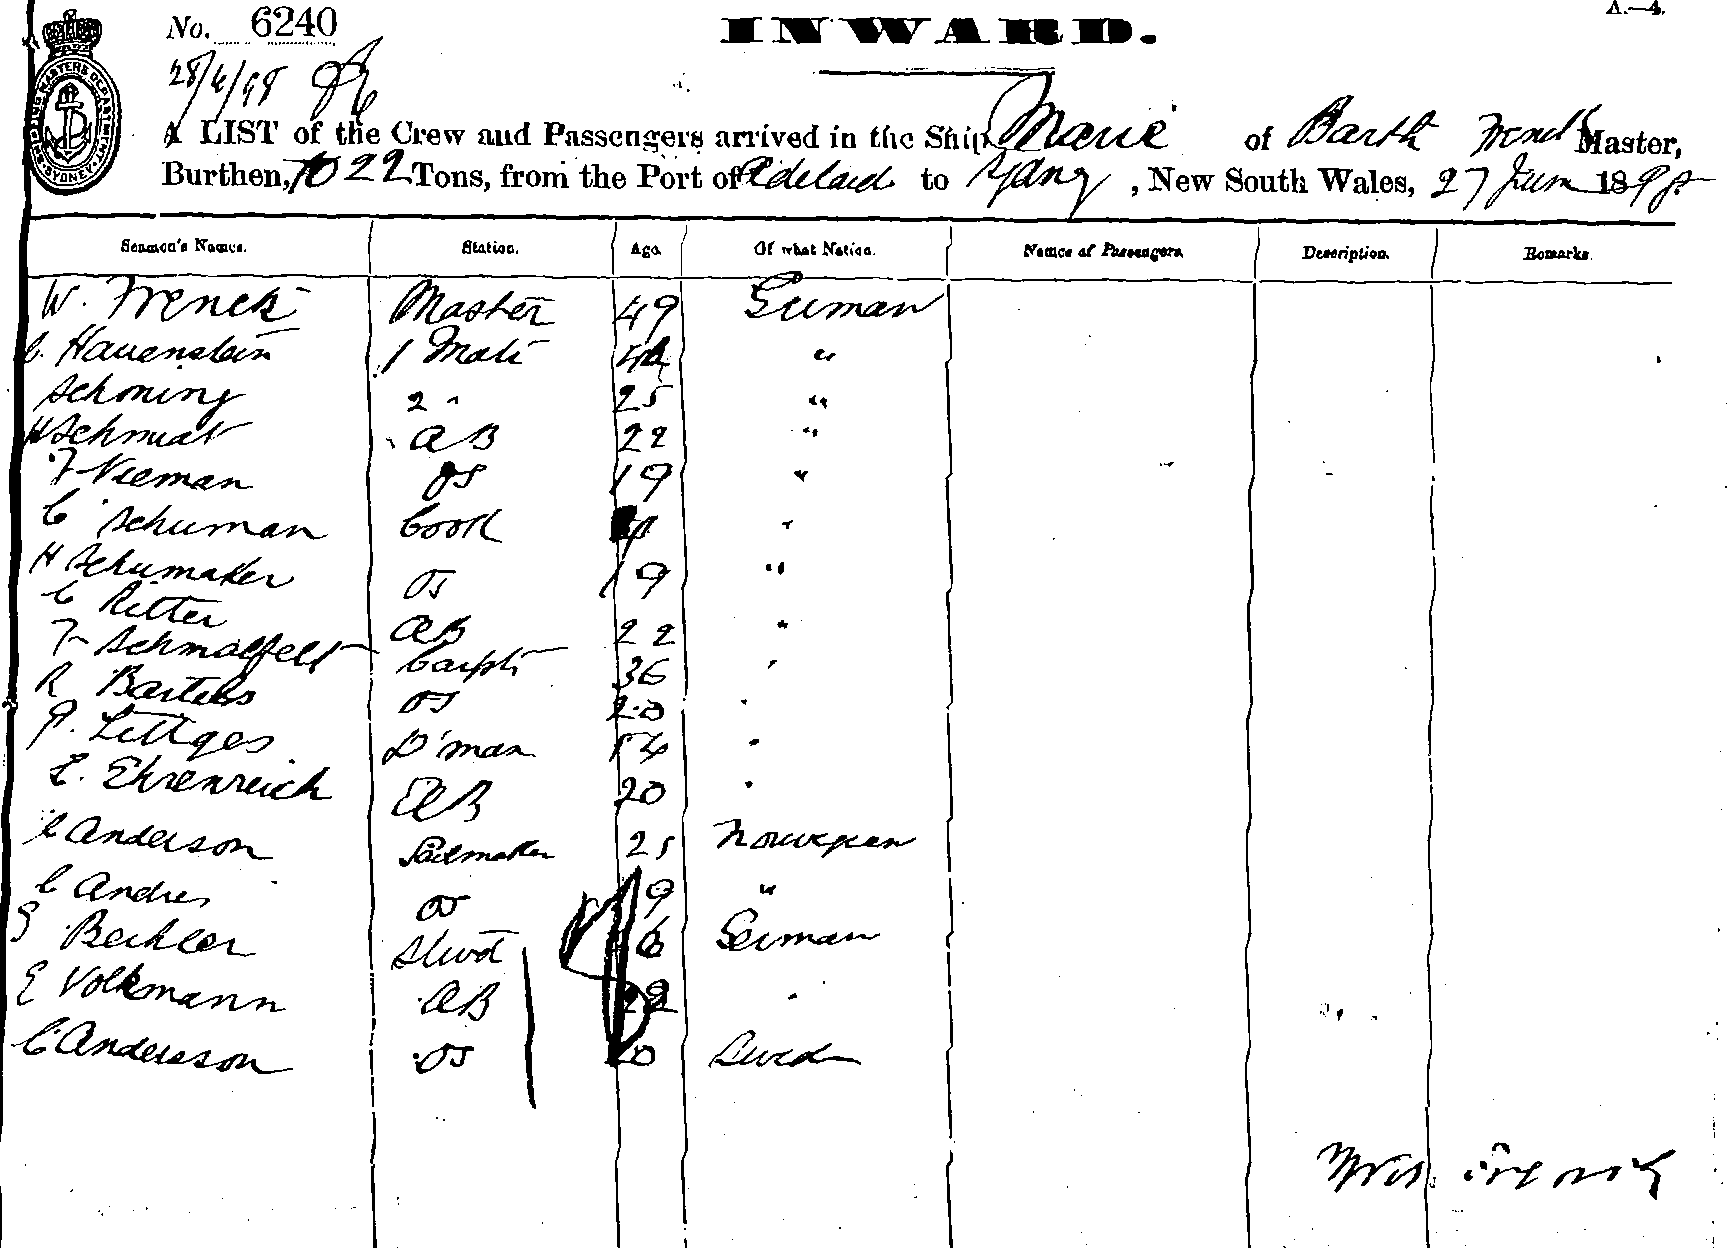 A.—4.
No. 6240
INWARD.
28/6/98
SHIPPING MASTERS DEPARTMENT SYDNEY
A LIST of the Crew and Passengers arrived in the Ship Marie of Barth Frenck Master,
Burthen, 1022 Tons, from the Port of Adelaid to Sydney, New South Wales, 27 June 1898
Seamen's Names. Station. Age. Of what Nation. Names of Passengers. Description. Remarks.
W. Frenck Master 49 German
C. Hauenstein 1 Mate "
Schoning 2 " 25 "
H Schmidt AB 22 "
F Nieman OS 19 "
C Schuman Cook "
H Schumaker OS 19 "
C Ritter AB 22 "
F Schmalfeldt Carptr 36 "
R Bartels OS 20 "
P. Littges D'man 54 "
E. Ehrenreich AB 20 "
C Anderson Sailmaker 25 Norwegian
C Andres OS 19 "
Bechler Stwd 16 German
E Volkmann AB 22 "
C Andersson OS 20 Swed